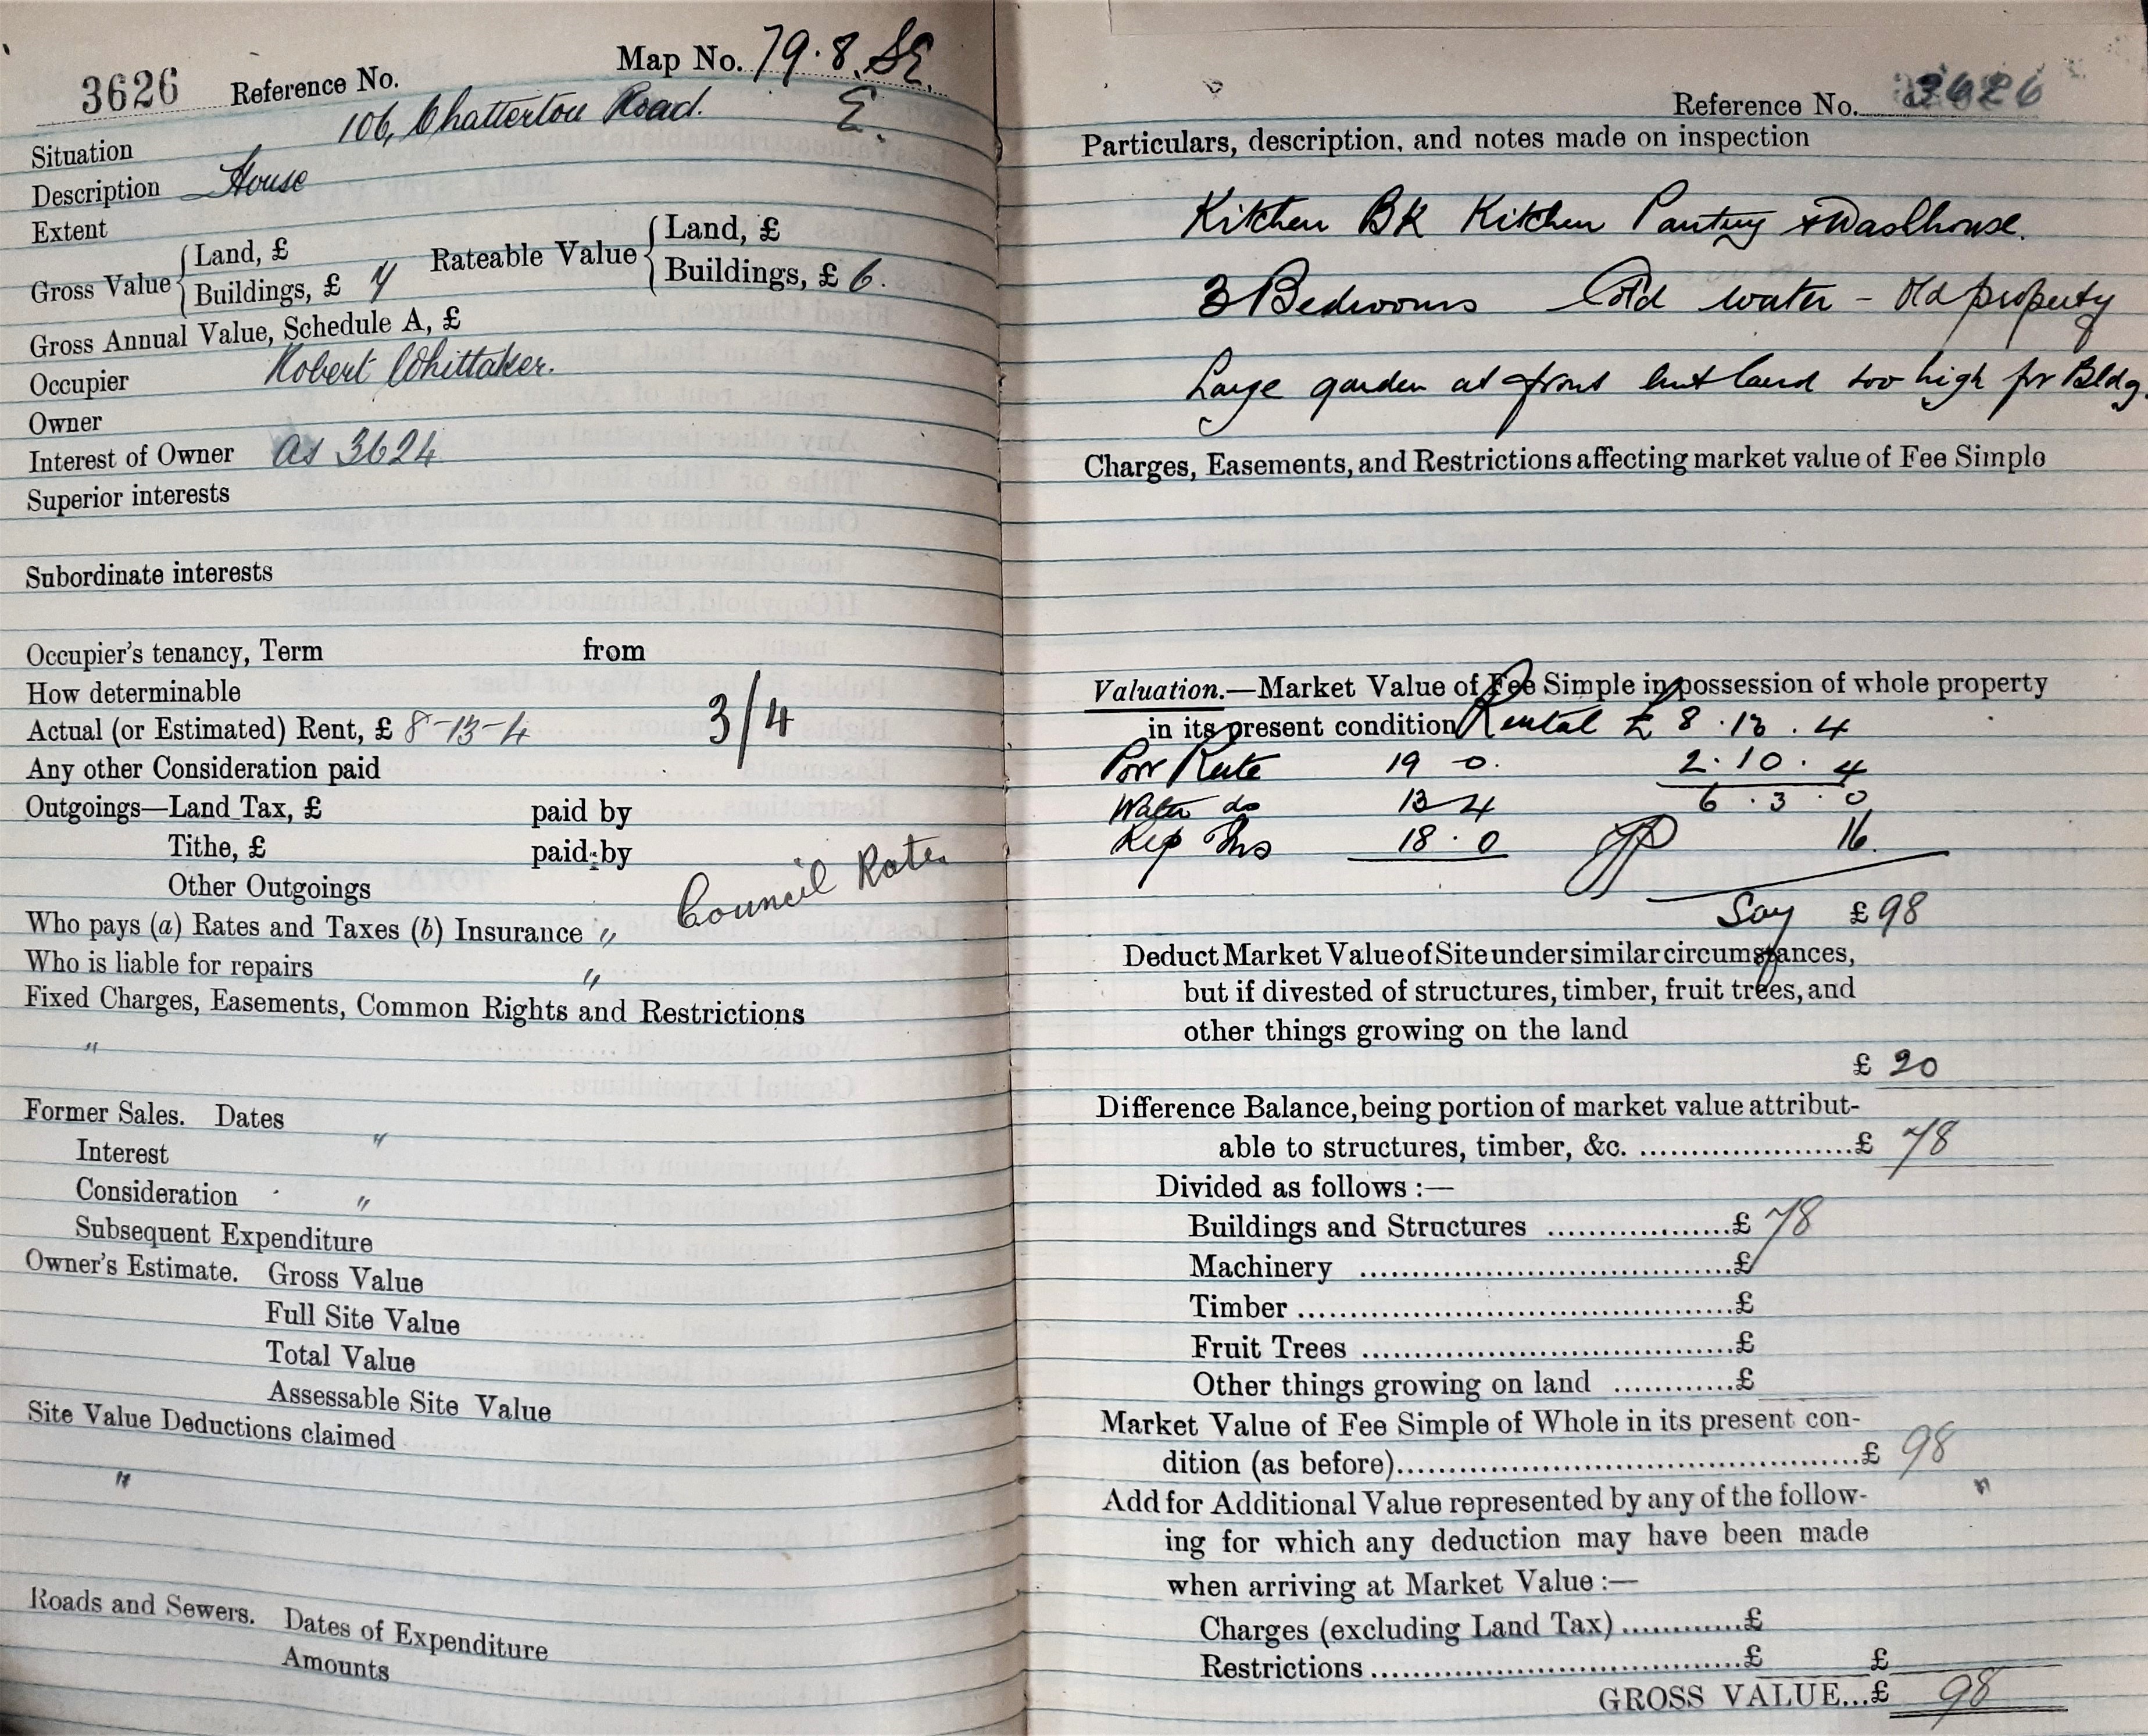 3626 Reference No. Map No. 79.8. SE.
E.
Situation 106, Chatterton Road.
Description House
Extent
Gross Value { Land, £ Rateable Value { Land, £
Buildings, £ 7 Buildings, £ 6.
Gross Annual Value, Schedule A, £
Occupier Robert Whittaker.
Owner
Interest of Owner as 3624
Superior interests
Subordinate interests
Occupier's tenancy, Term from
How determinable
Actual (or Estimated) Rent, £ 8-13-4 3/4
Any other Consideration paid
Outgoings—Land Tax, £ paid by
Tithe, £ paid by
Other Outgoings Council Rate.
Who pays (a) Rates and Taxes (b) Insurance "
Who is liable for repairs "
Fixed Charges, Easements, Common Rights and Restrictions
"
Former Sales. Dates "
Interest
Consideration "
Subsequent Expenditure
Owner's Estimate. Gross Value
Full Site Value
Total Value
Assessable Site Value
Site Value Deductions claimed
"
Roads and Sewers. Dates of Expenditure
Amounts
Reference No. 3626
Particulars, description, and notes made on inspection
Kitchen BK Kitchen Pantry & Washhouse.
3 Bedrooms Cold water - Old property
Large garden at front but land too high for Bldg.
Charges, Easements, and Restrictions affecting market value of Fee Simple
Valuation.—Market Value of Fee Simple in possession of whole property
in its present condition Rental £ 8.13.4
Poor Rate 19 0. 2.10.4
Water do 13 4 6.3.0
Rep Ins 18.0 YP 16.
Say £98
Deduct Market Value of Site under similar circumstances,
but if divested of structures, timber, fruit trees, and
other things growing on the land
£ 20
Difference Balance, being portion of market value attribut-
able to structures, timber, &c. ....................£ 78
Divided as follows :—
Buildings and Structures ..................£ 78
Machinery ....................................£
Timber ..........................................£
Fruit Trees ....................................£
Other things growing on land ............£
Market Value of Fee Simple of Whole in its present con-
dition (as before)..............................................£ 98
Add for Additional Value represented by any of the follow- "
ing for which any deduction may have been made
when arriving at Market Value :—
Charges (excluding Land Tax) ............£
Restrictions ....................................£ £
GROSS VALUE...£ 98